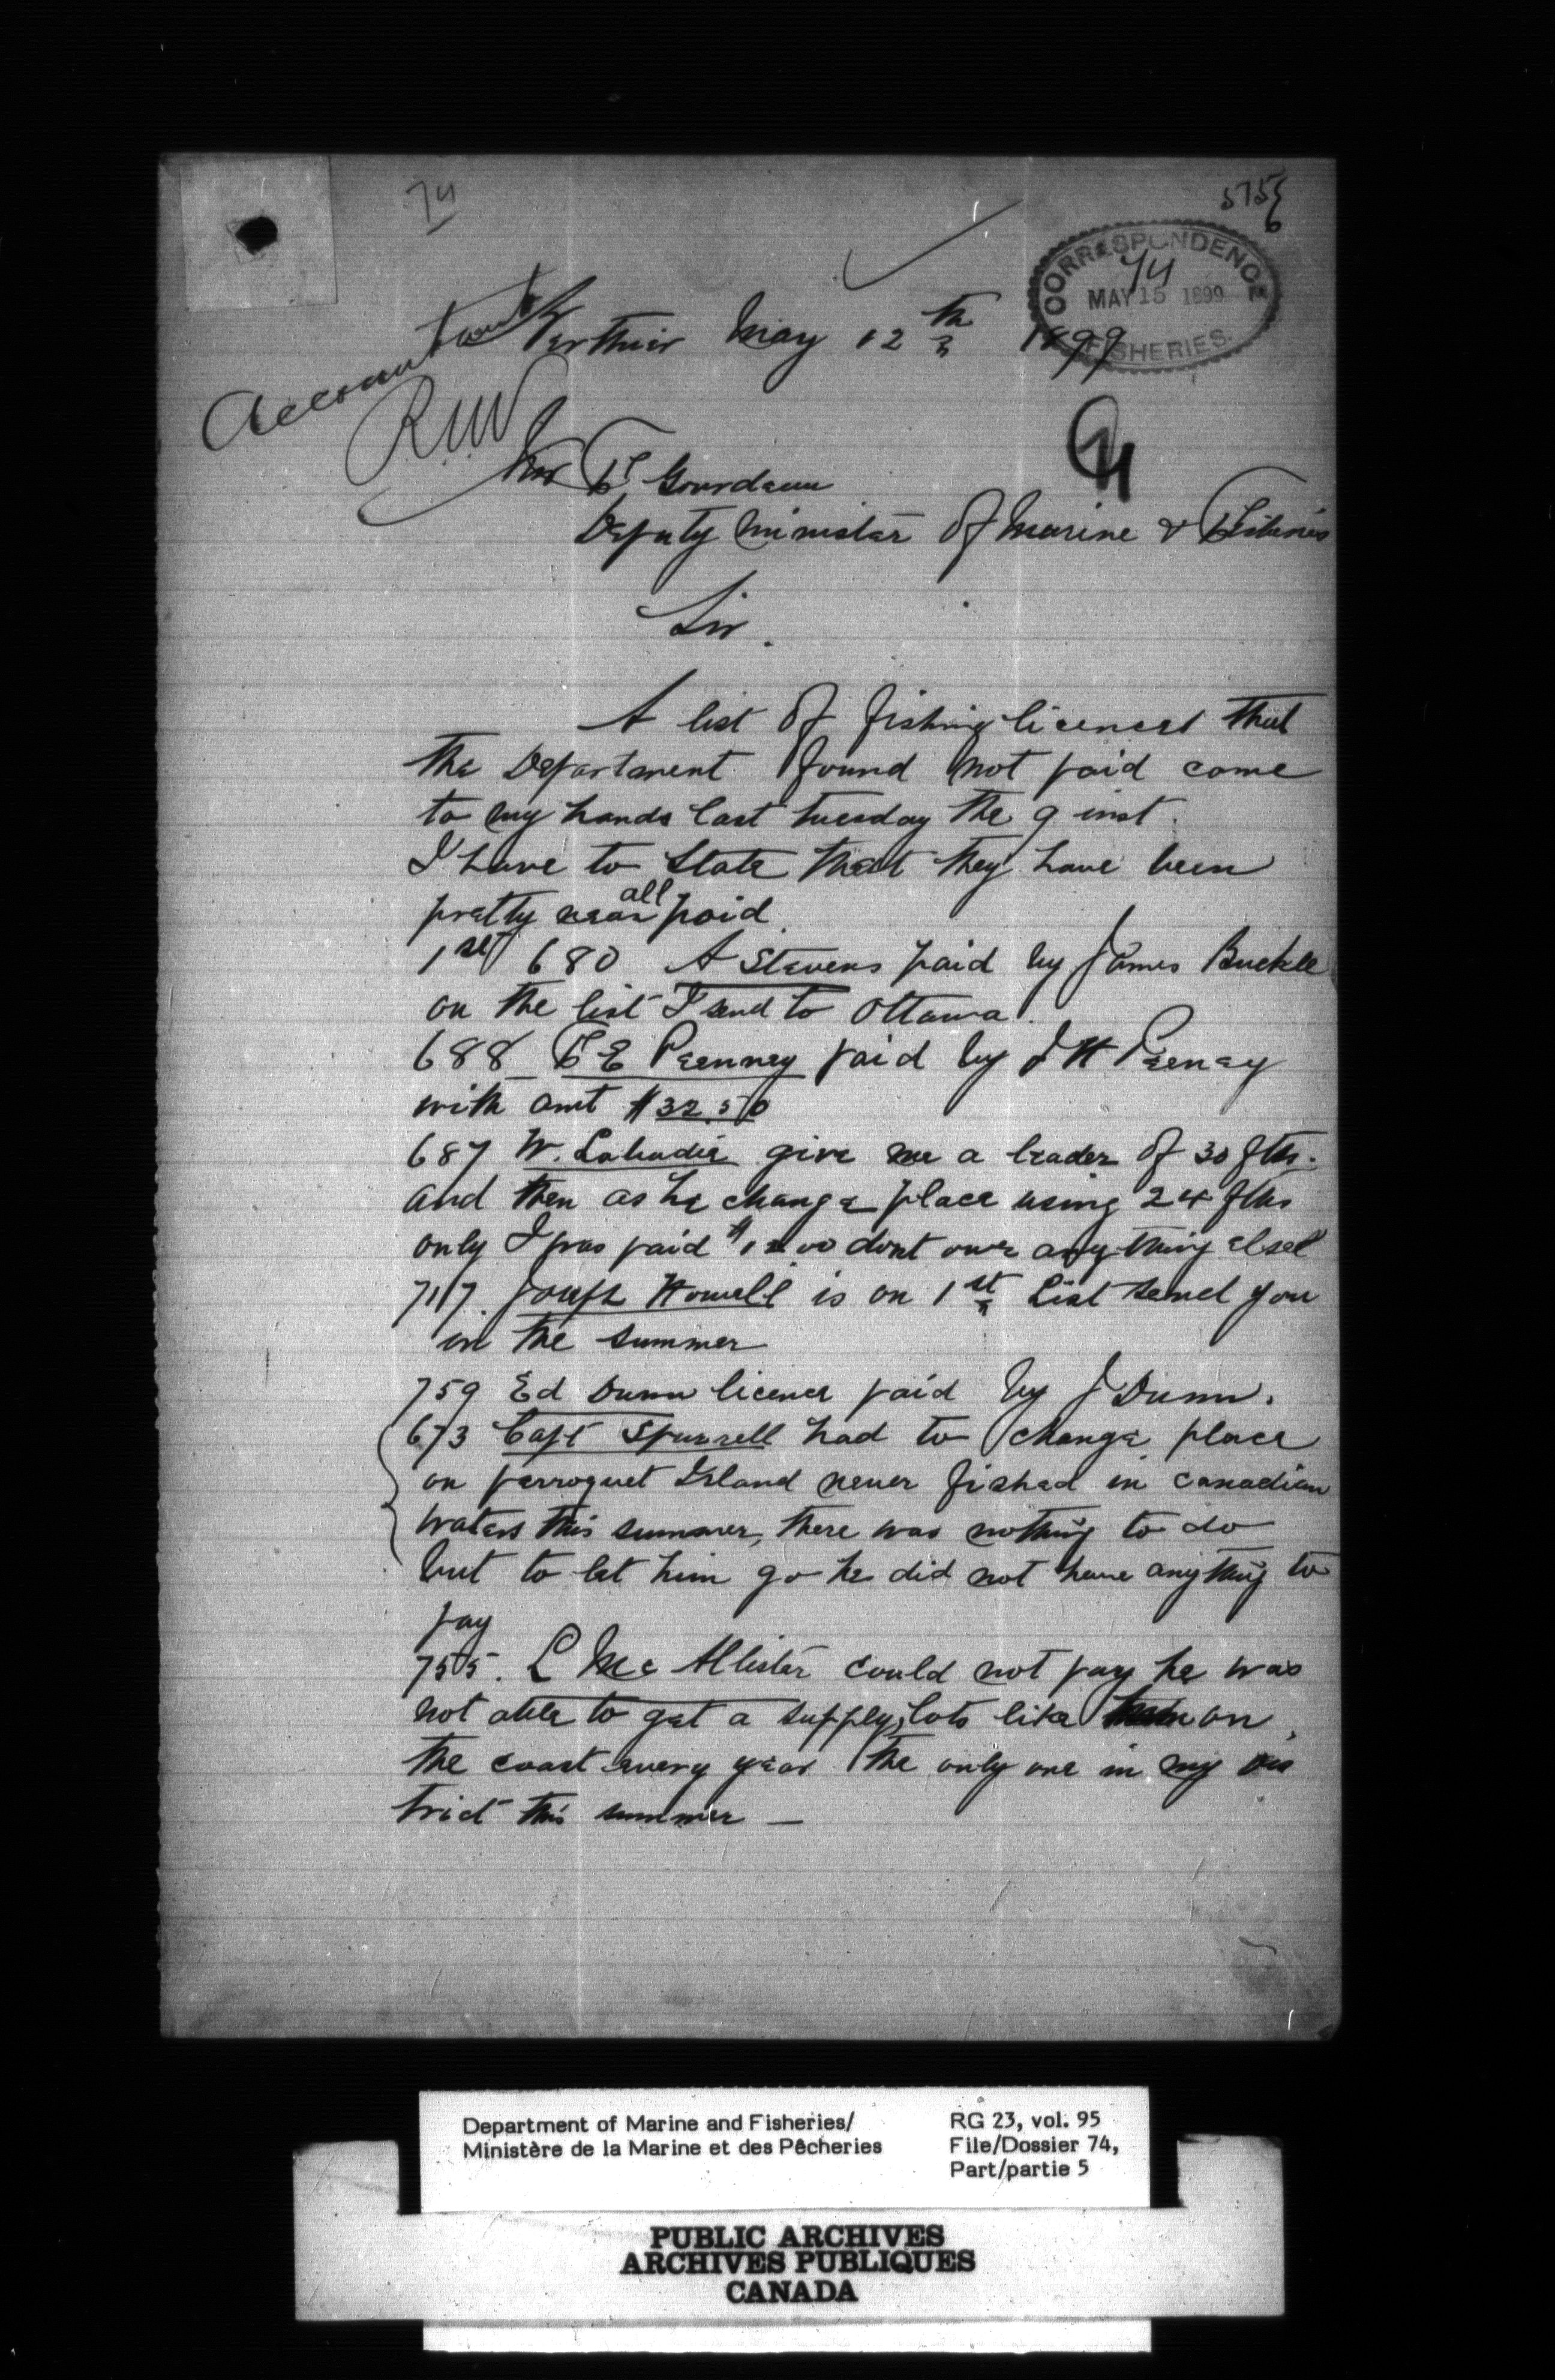 74
5756
CORRESPONDENCE
74
MAY 15 1899
FISHERIES.
Accountant
Berthier May 12th 1899
RW
F Gourdeau
Deputy Minister of Marine & Fisheries
Sir.
A list of fishing licenses that
the Department found not paid come
to my hands last tuesday the 9 inst.
I have to state that they have been
pretty near all paid
1st 680 A Stevens paid by James Buckle
on the list I send to Ottawa.
688 F E Peenney paid by J H Peeney
with amt $32.50
687 W. Labadie give me a leader of 30 fths.
and then as he change place using 24 fths
only I was paid $12.00 dont owe any-thing else
717. Joseph Howell is on 1st List send you
in the summer
759 Ed Dunn licence paid by J Dunn.
673 Capt Spurrell had to change place
on perroquet Island never fished in canadian
waters this summer, there was nothing to do
but to let him go he did not have anything to
pay
755. L Mc Allister could not pay he was
not able to get a supply, lots like him on
the coast every year the only one in my dis
trict this summer —
Department of Marine and Fisheries/
Ministère de la Marine et des Pêcheries
RG 23, vol. 95
File/Dossier 74,
Part/partie 5
PUBLIC ARCHIVES
ARCHIVES PUBLIQUES
CANADA